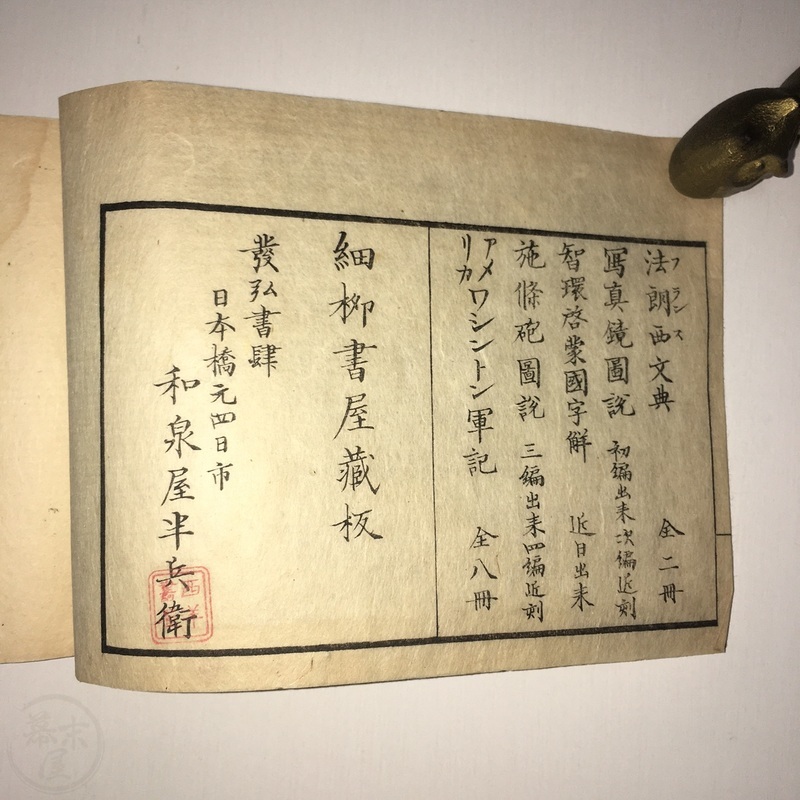 法朗西文典 全二冊
フランス
寫真鏡圖説 初編出来次編近刻
智環啓蒙國字解 近日出来
施條砲圖説 三編出来四編近刻
アメリカワシントン軍記 全八冊
細柳書屋藏板
發弘書肆
日本橋元四日市
和泉屋半兵衛
幕末屋